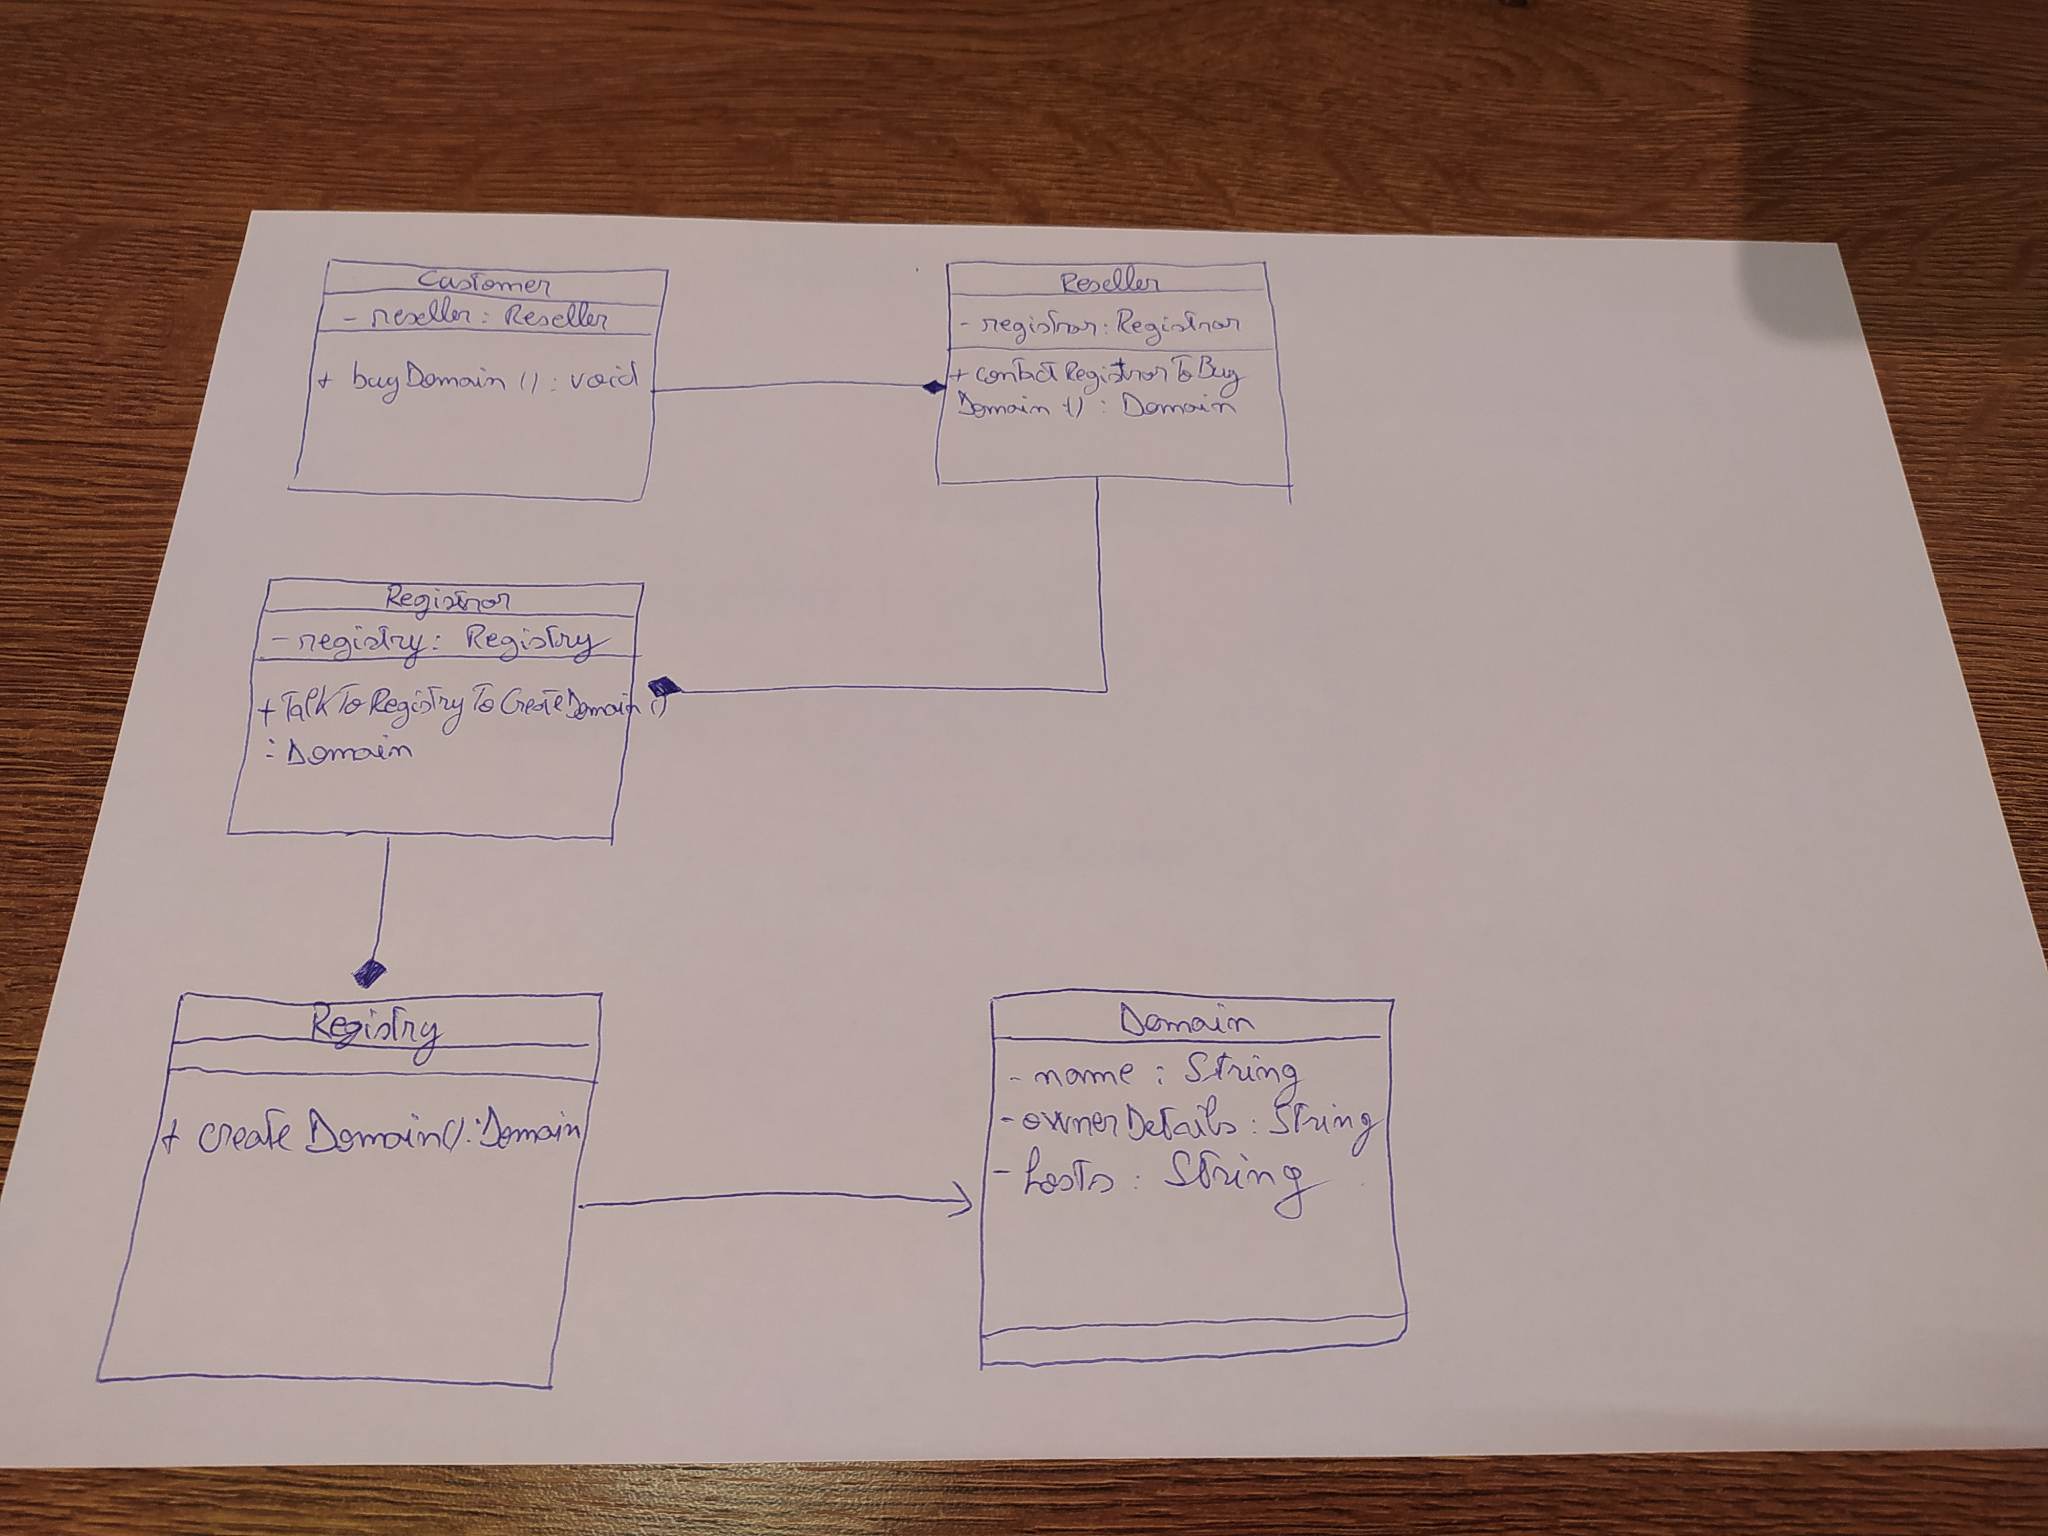 Customer
- reseller: Reseller
+ buyDomain (): void
Reseller
- registrar: Registrar
+ contactRegistrarToBuy
Domain () : Domain
Registrar
- registry: Registry
+ TalkToRegistryToCreateDomain ()
: Domain
Registry
+ createDomain(): Domain
Domain
- name : String
- ownerDetails : String
- hosts : String